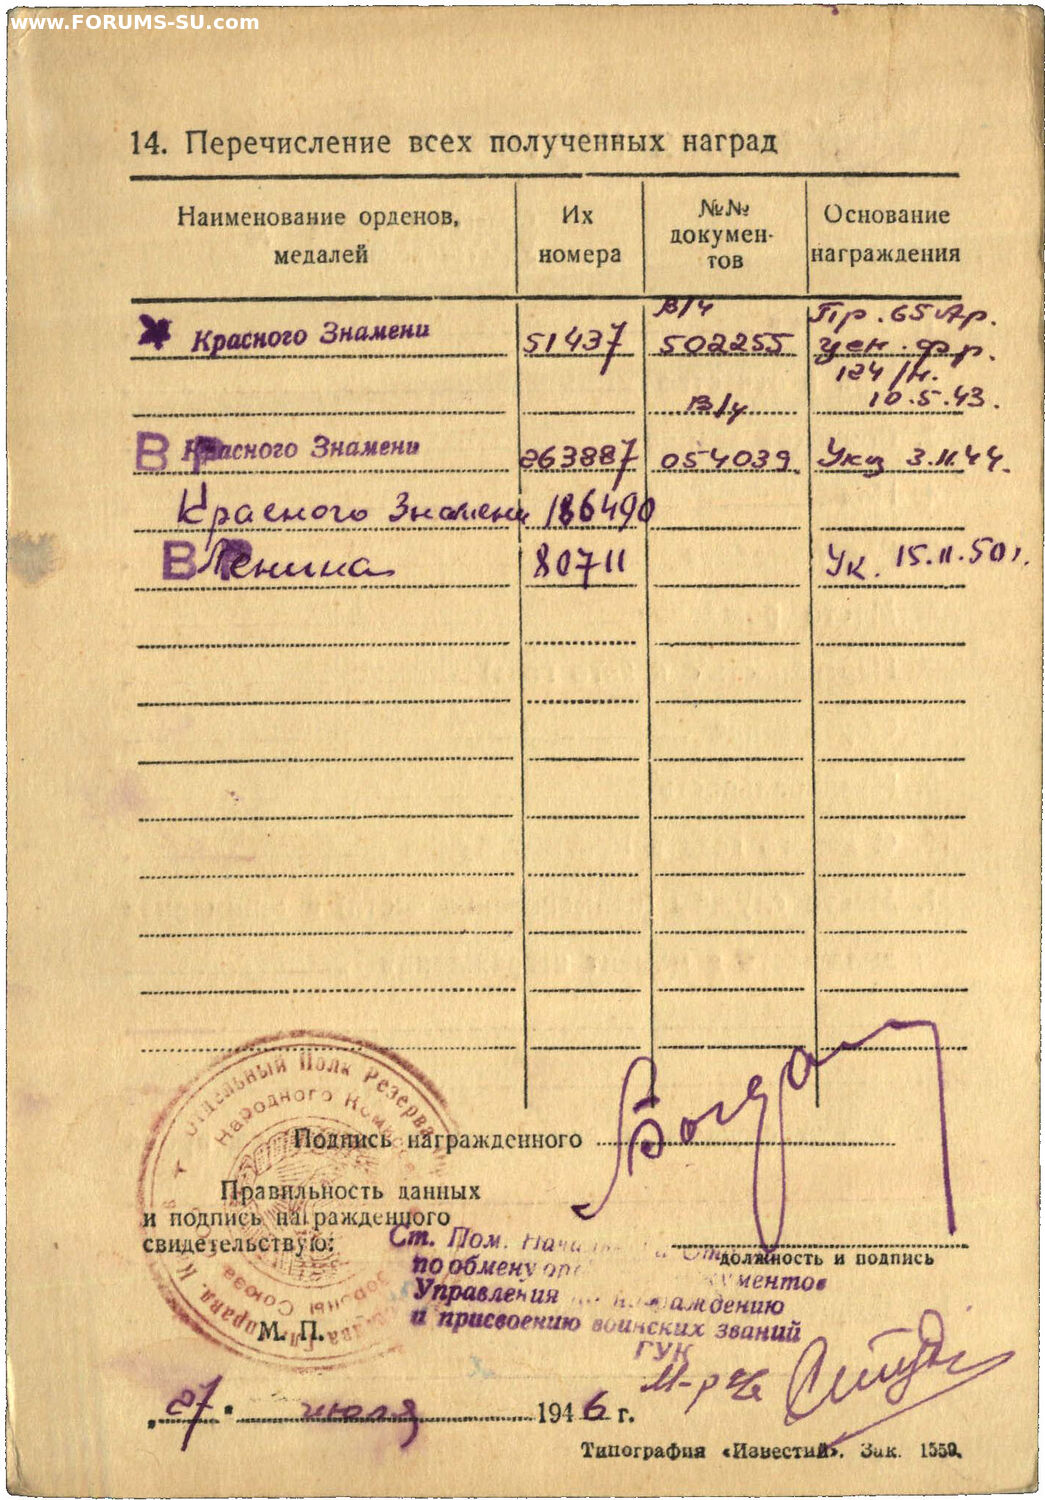 www.FORUMS-SU.com
14. Перечисление всех полученных наград
Наименование орденов, медалей
Их номера
№№ докумен-
тов
Основание награждения
Красного Знамени 51437 В/ч 502255 Пр. 65 Ар. Цен. фр. 124/н. 10.5.43.
ВР Красного Знамени 263887 В/ч 054039. Указ 3.11.44.
Красного Знамени 186490
ВР Ленина 80711 Ук. 15.11.50г.
Отдельный Полк Резерва
Народного
Союза
Подпись награжденного
Правильность данных
и подпись награжденного
свидетельствую:
должность и подпись
Ст. Пом.
по обмену документов
Управления по награждению
и присвоению воинских званий
ГУК
М. П.
М-р
„27" июля 1946 г.
Типография «Известий». Зак. 1559.